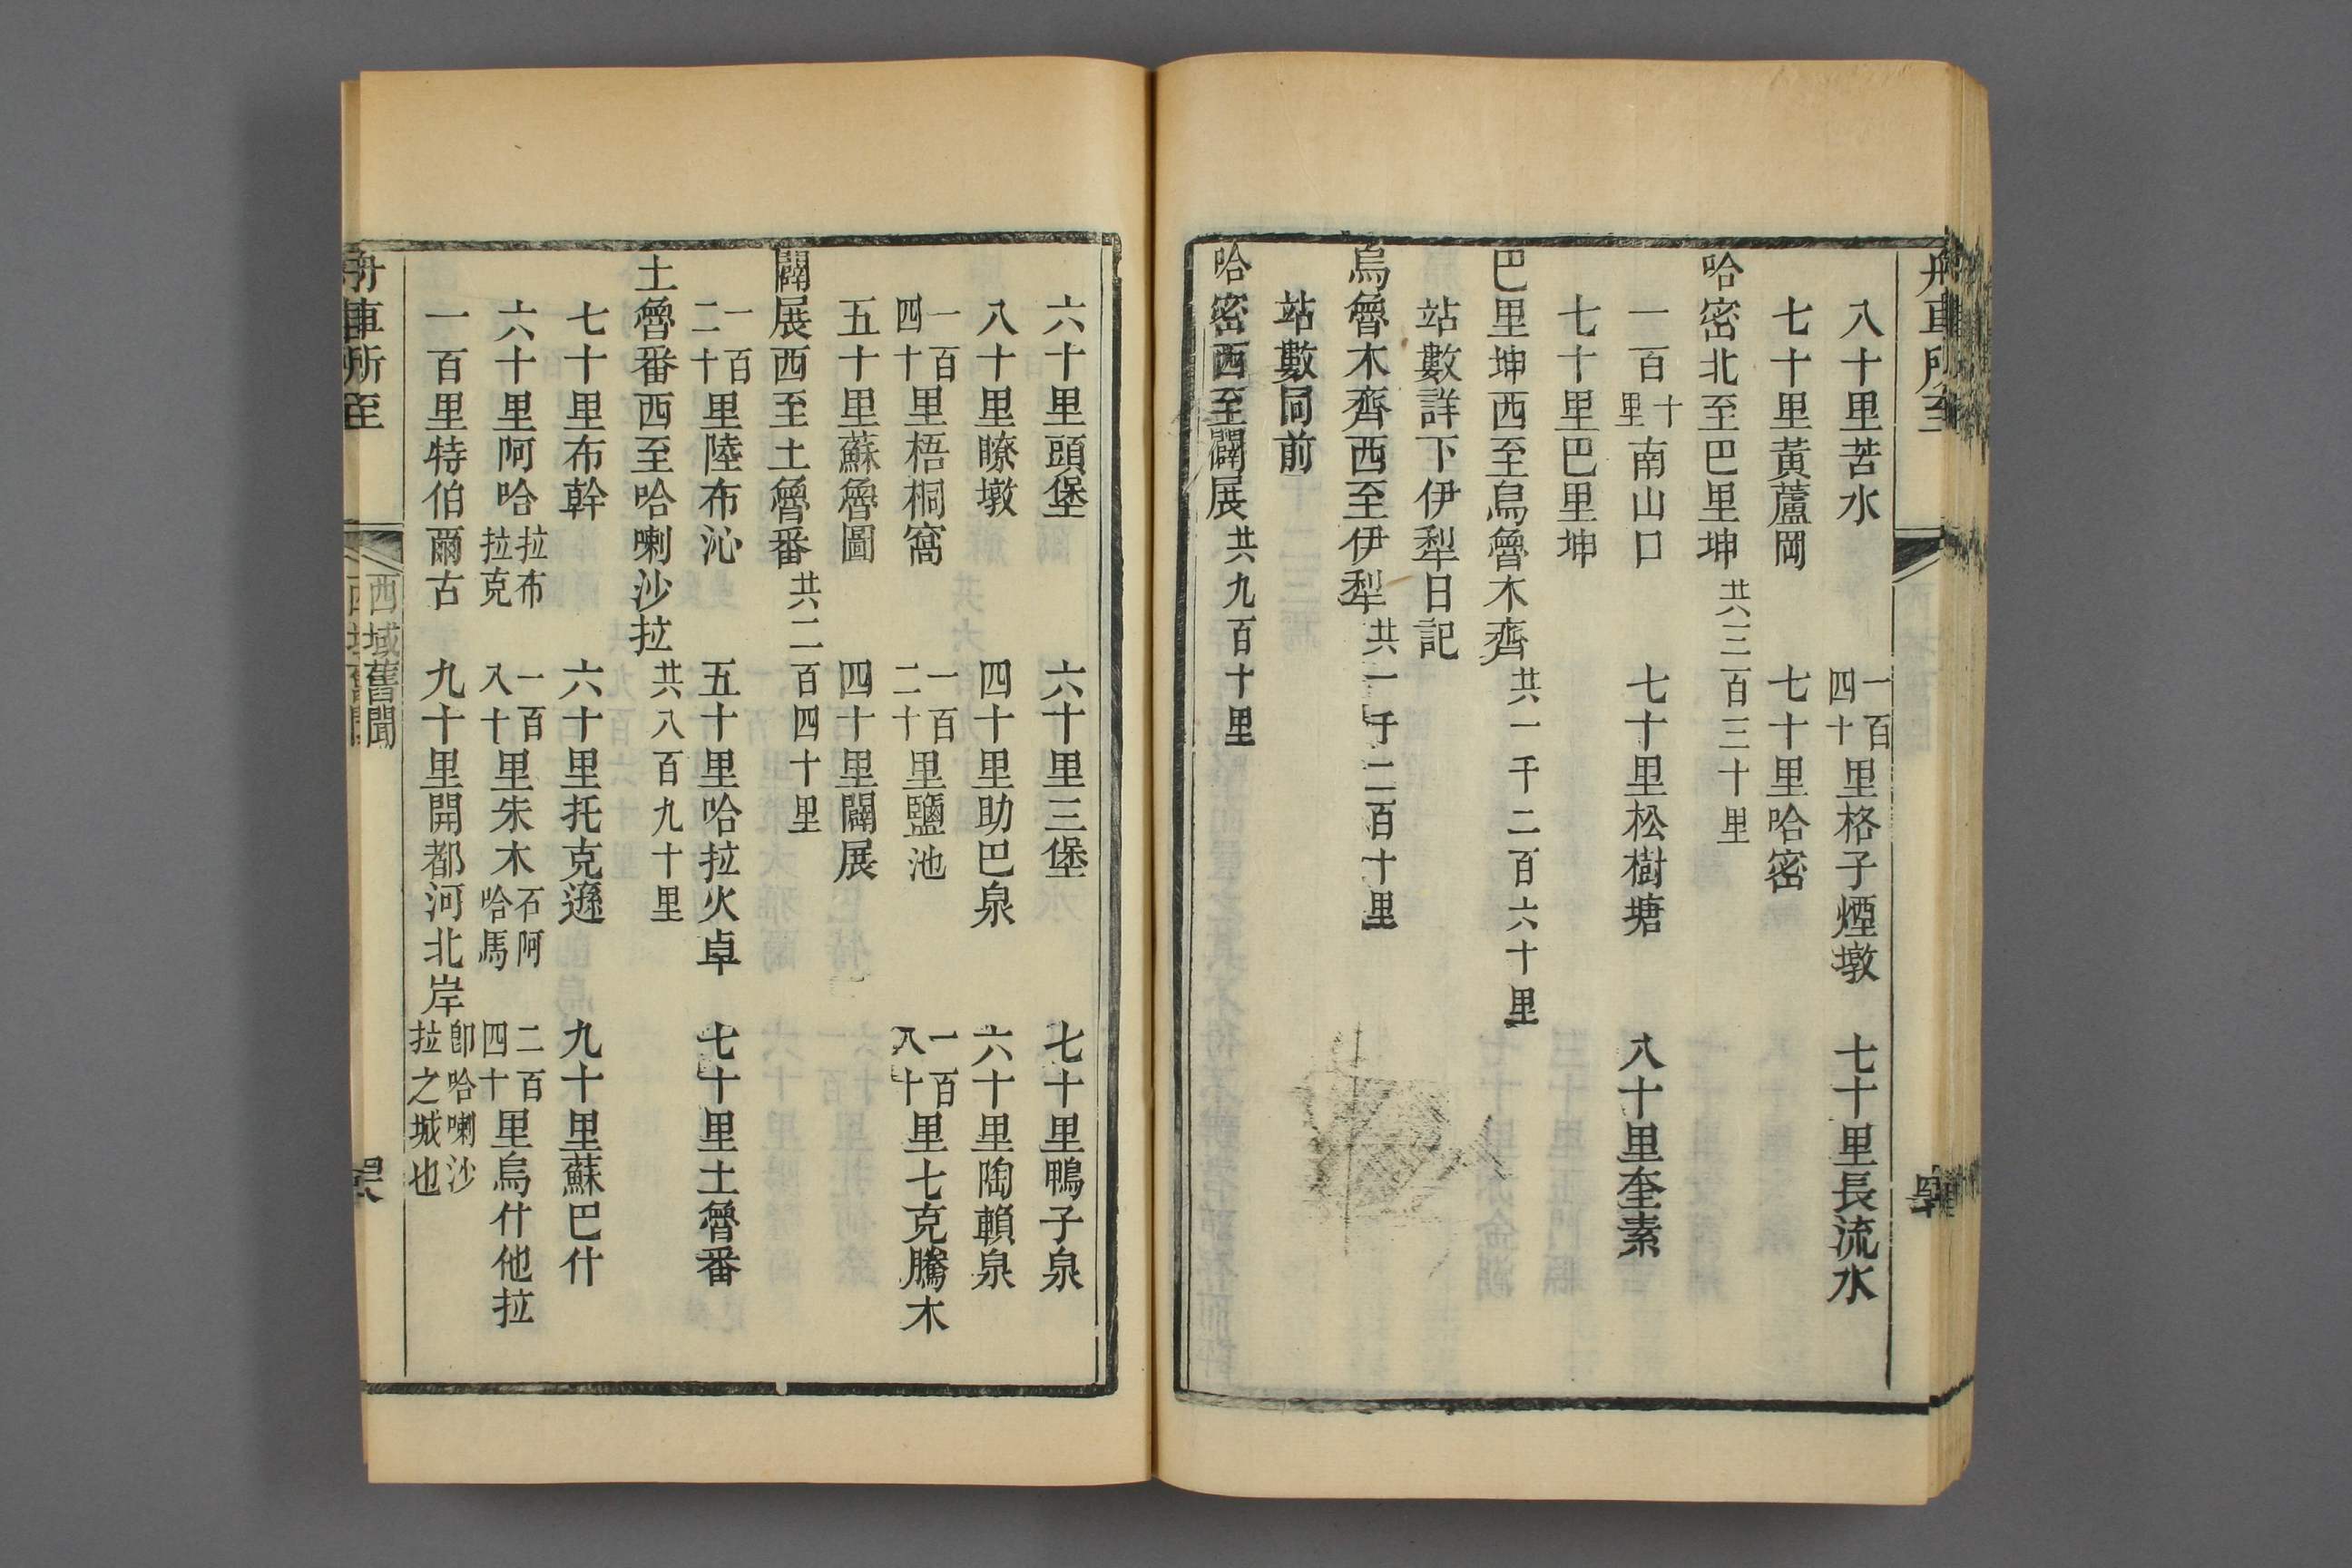 八十里苦水　一百四十里格子煙墩　七十里長流水
七十里黃蘆岡　七十里哈密
哈密北至巴里坤共三百三十里
一百十里南山口　七十里松樹塘　八十里奎素
七十里巴里坤
巴里坤西至烏魯木齊共一千二百六十里
站數詳下伊犁日記
烏魯木齊西至伊犁共一千二百十里
站數同前
哈密西至闢展共九百十里
六十里頭堡　六十里三堡　七十里鴨子泉
八十里瞭墩　四十里助巴泉　六十里陶賴泉
一百四十里梧桐窩　一百二十里鹽池　一百八十里七克騰木
五十里蘇魯圖　四十里闢展
闢展西至土魯番共二百四十里
一百二十里陸布沁　五十里哈拉火卓　七十里土魯番
土魯番西至哈喇沙拉共八百九十里
七十里布幹　六十里托克遜　九十里蘇巴什
六十里阿哈拉布拉克　一百八十里朱木石阿哈馬　二百四十里烏什他拉
一百里特伯爾古　九十里開都河北岸卽哈喇沙拉之城也
舟車所至　西域舊聞